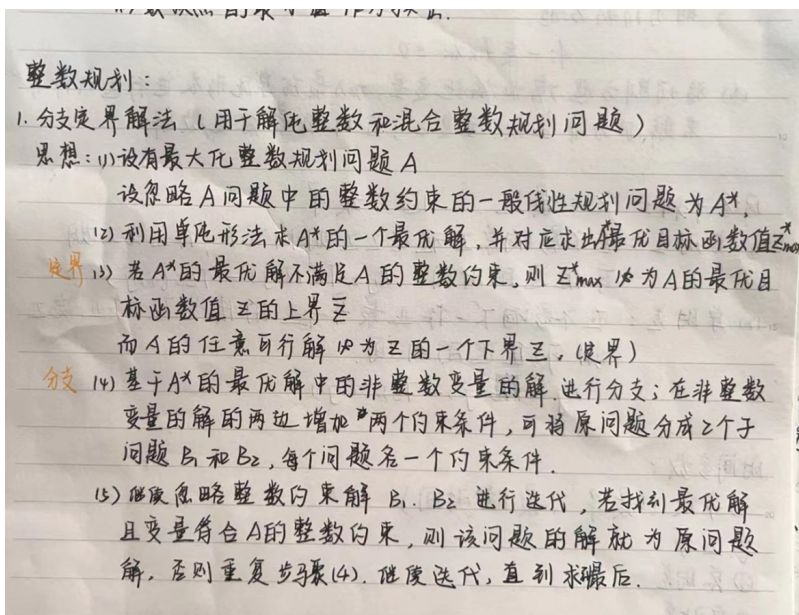 整数规划：
1. 分支定界解法（用于解纯整数和混合整数规划问题）
思想：(1)设有最大化整数规划问题A
设忽略A问题中的整数约束的一般线性规划问题为A*，
(2)利用单纯形法求A*的一个最优解，并对应求出A*最优目标函数值Z*max
定界 (3) 若A*的最优解不满足A的整数约束，则 Z*max 必为A的最优目
标函数值 Z的上界 Z̅
而A的任意可行解必为Z的一个下界Z̲.（定界）
分支 (4) 基于A*的最优解中的非整数变量的解.进行分支；在非整数
变量的解的两边增加两个约束条件，可将原问题分成2个子
问题 B₁ 和B₂，每个问题各一个约束条件.
(5) 继续忽略整数约束解 B₁、B₂ 进行迭代，若找到最优解
且变量符合A的整数约束，则该问题的解就为原问题
解，否则重复步骤(4). 继续迭代，直到求最后.